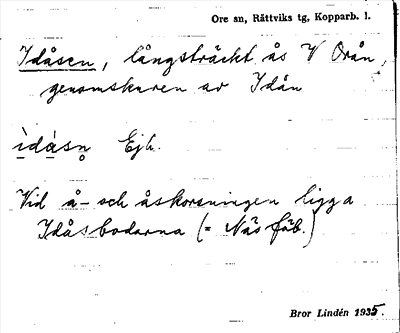 Ore sn, Rättviks tg, Kopparb. l.
Idåsen, långsträckt ås V Orån,
genomskuren av Idån
ìdàsn̥ Ejh.
Vid å- och åskorsningen ligga
Idåsbodarna (= Näs fäb.)
Bror Lindén 1935.